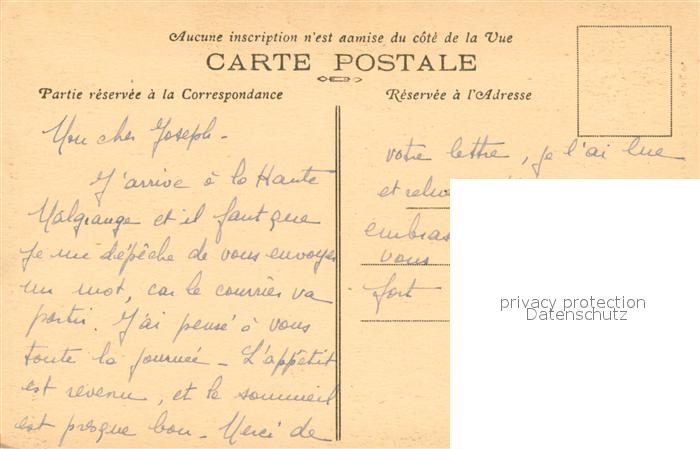 Aucune inscription n'est aamise du côté de la Vue
CARTE POSTALE
Partie réservée à la Correspondance
Réservée à l'Adresse
Mon cher Joseph -
J'arrive à la Haute
Malgrange et il faut que
je me dépêche de vous envoyer
un mot, car le courrier va
partir. J'ai pensé à vous
toute la journée - L'appétit
est revenu, et le sommeil
est presque bon - Merci de
votre lettre, je l'ai lue
et relue
embras
vous
fort
privacy protection
Datenschutz